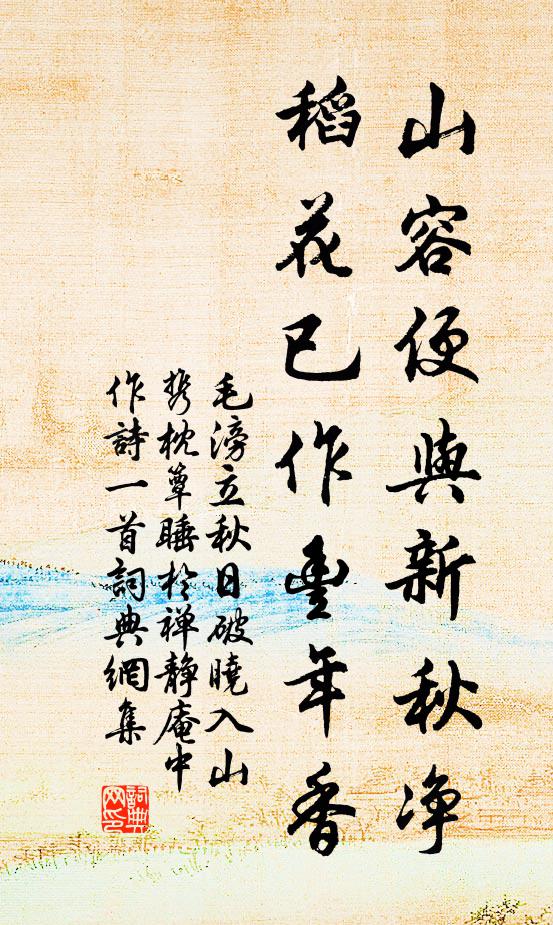 山容便與新秋净
稻花已作豊年香
毛滂立秋日破曉入山
携枕簟睡於禅靜庵中
作詩一首詞典網集
詞典网印